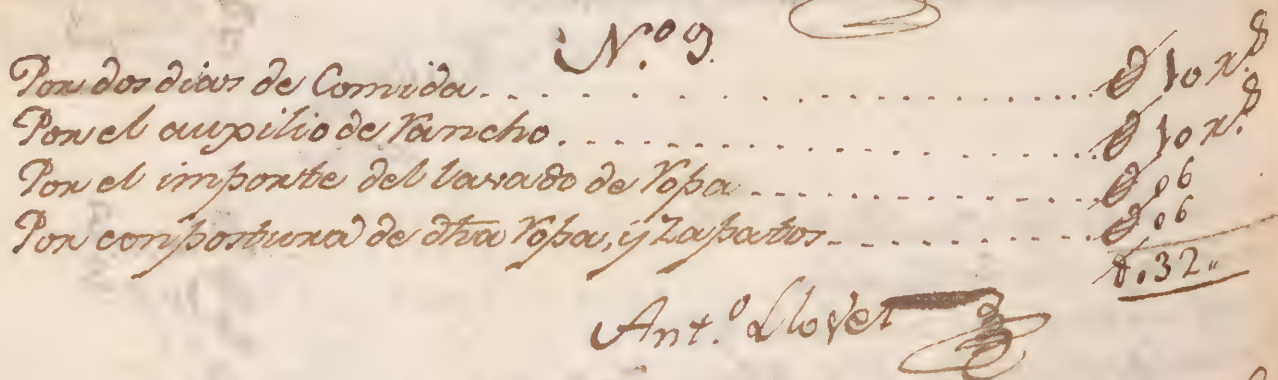 N.º 9.
Por dos dias de Comida. . . . . . . . . . . . . . . . . 10 r.s
Por el auxilio de rancho. . . . . . . . . . . . . . . . 10 r.s
Por el importe del lavado de ropa . . . . . . . . . . . 06
Por conpostura de dha ropa, y Zapatos . . . . . . . . . 06
32
Ant.º Llovet